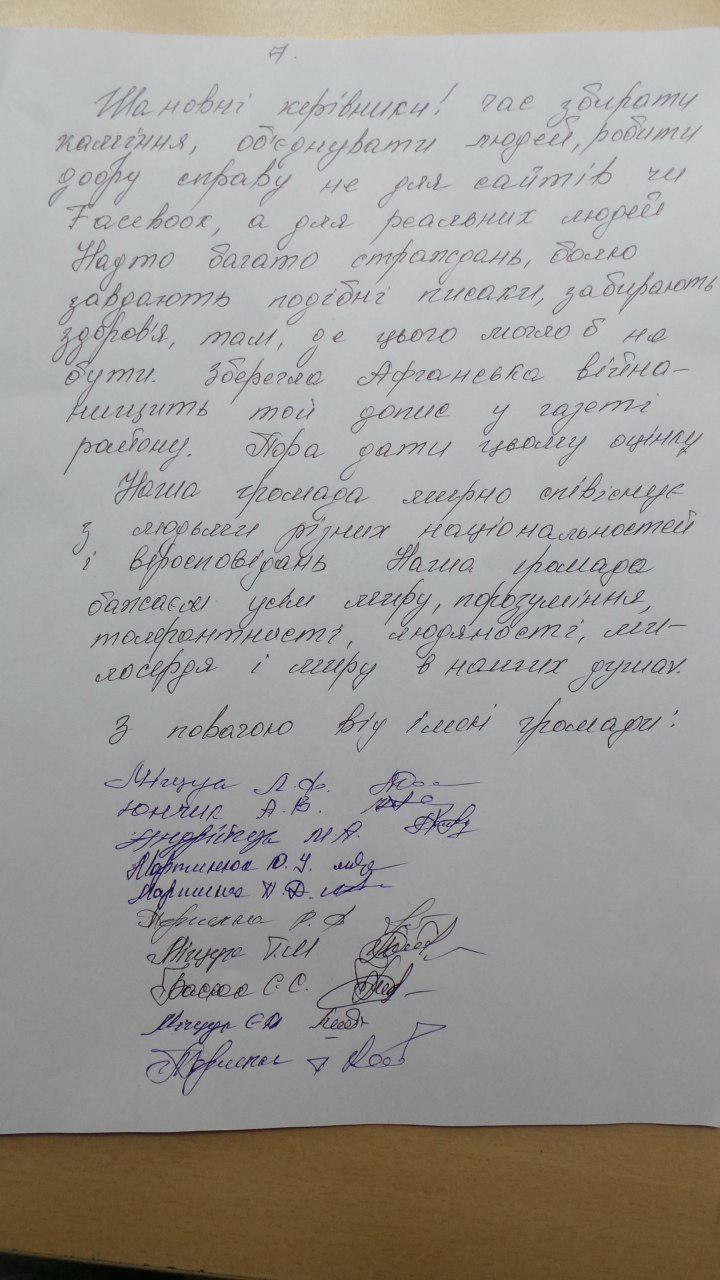 7.
Шановні керівники! час збирати
каміння, об'єднувати людей, робити
добру справу не для сайтів чи
Facebook, а для реальних людей
Надто багато страждань, болю
завдають подібні писаки, забирають
здоров'я, там, де цього могло б не
бути. Зберегла Афганська війна-
нищить той допис у газеті
району. Пора дати цьому оцінку
Наша громада мирно співіснує
з людьми різних національностей
і віросповідань Наша громада
бажаєм усім миру, порозуміння,
толерантності, людяності, ми-
лосердя і миру в наших душах.
З повагою від імені громади:
Міцура Л. Ф.
Юнчик А. В.
М А.
Мартинюк Ю. У.
П. Д.
Р. Ф
Т. М
Є. С.
Є М